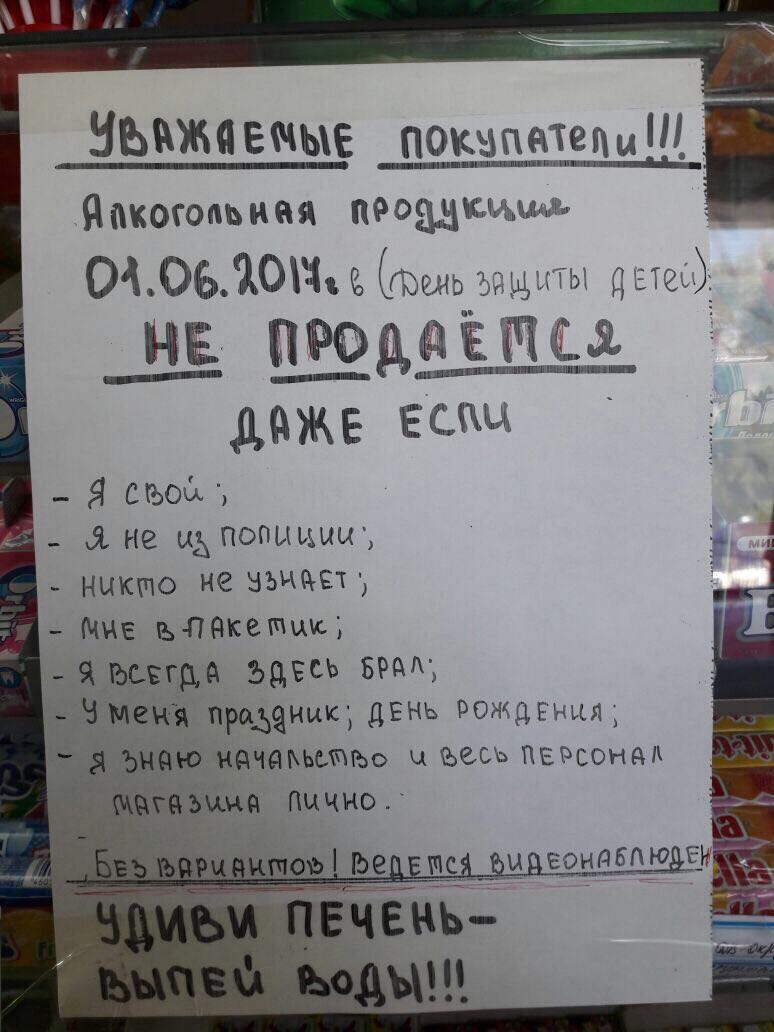 УВАЖАЕМЫЕ ПОКУПАТЕЛИ!!!
Алкогольная продукция
01.06.2017г в (День защиты детей)
НЕ ПРОДАЁТСЯ
ДАЖЕ ЕСЛИ
- Я свой;
- Я не из полиции;
- никто не узнает;
- мне в пакетик;
- Я всегда здесь брал;
- У меня праздник; день рождения;
- я знаю начальство и весь персонал
магазина лично.
Без вариантов! Ведется видеонаблюден
УДИВИ ПЕЧЕНЬ-
ВЫПЕЙ ВОДЫ!!!
Orbit